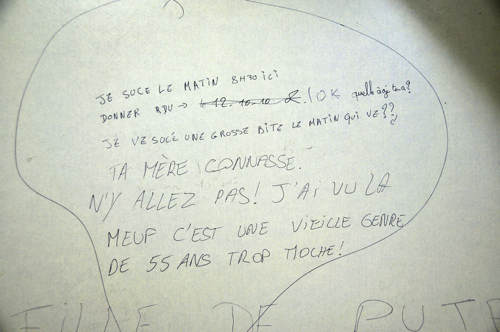 JE SUCE LE MATIN 8H30 ici
DONNER RDV → 12.10.10 OK quelle âge tu a?
JE VE SUCÉ UNE GROSSE BITE LE MATIN QUI VE??
TA MÈRE CONNASSE.
N'Y ALLEZ PAS! J'AI VU LA
MEUF C'EST UNE VIEILLE GENRE
DE 55 ANS TROP MOCHE!
FILLE DE PUTE